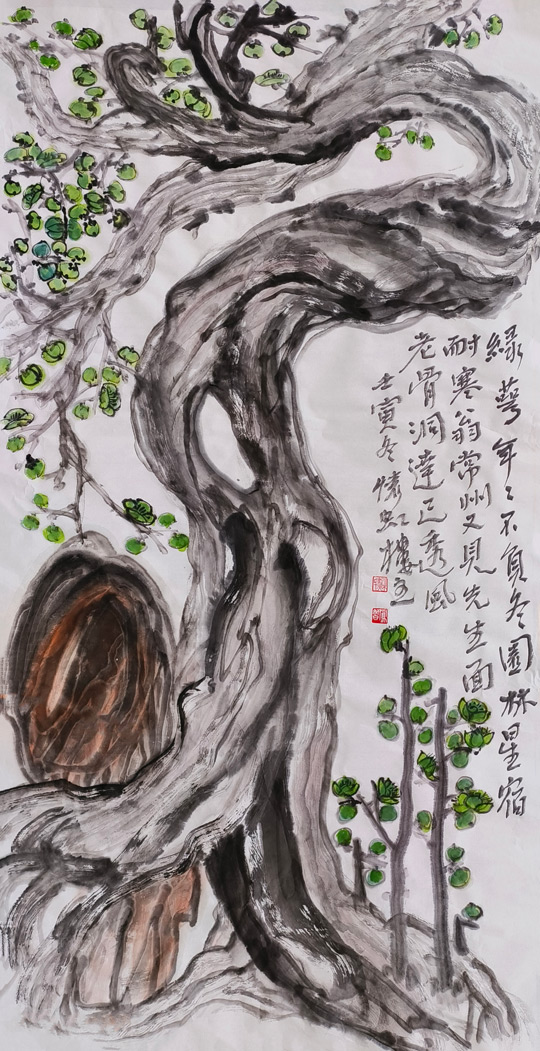 緑萼年〻不負冬園林星宿
耐寒翁常州又見先生面
老骨洞達已透風
壬寅冬懐虹樓主